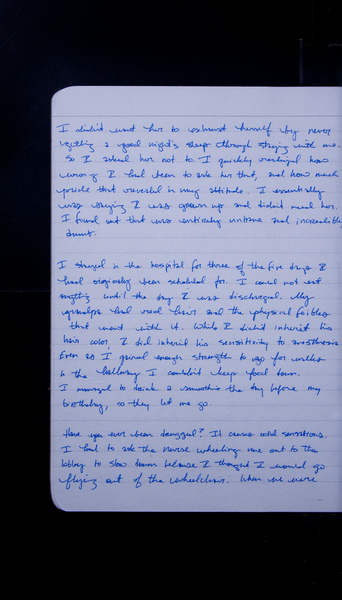 I didn't want her to exhaust herself by never
getting a good night's sleep through staying with me.
So I asked her not to. I quickly realized how
wrong I had been to ask her that, and how much
pride that revealed in my attitude. I essentially
was saying I was grown up and didn't need her.
I found out that was entirely untrue and incredibly
dumb.
I stayed in the hospital for three of the five days I
had originally been scheduled for. I could not eat
anything until the day I was discharged. My
grandpa had red hair and the physical foibles
that went with it. While I didn't inherit his
hair color, I did inherit his sensitivity to anesthesia.
Even as I gained enough strength to go for walks
in the hallway I couldn't keep food down.
I managed to drink a smoothie the day before my
birthday, so they let me go.
Have you ever been drugged? It causes odd sensations.
I had to ask the nurse wheeling me out to the
lobby to slow down because I thought I would go
flying out of the wheelchair. When we were